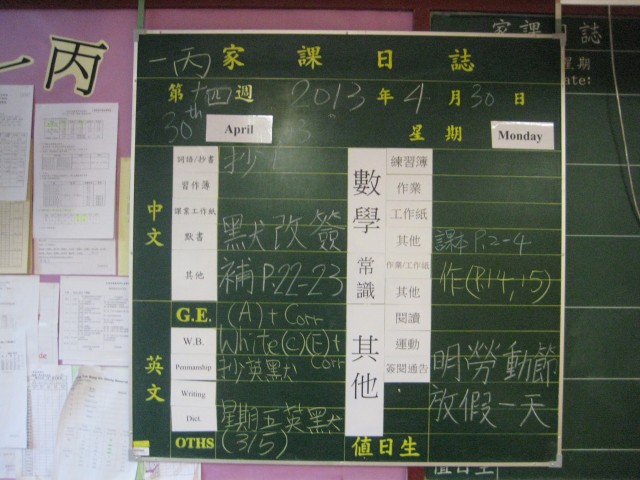 一丙
一丙 家課日誌
第十四週 2013年4月30日
30th April 星期 Monday
中文
詞語/抄書 抄
習作簿
課業工作紙
默書 默改簽
其他 補P.22-23
英文
G.E. (A)+Corr
W.B. White(C)(E)+Corr
Penmanship 抄英默
Writing
Dict. 星期五英默
OTHS (3/5)
數學
練習簿
作業
工作紙
其他 課本P.2-4
常識
作業/工作紙 作(P.14,15)
其他
其他
閱讀
運動
簽閱通告 明勞動節
放假一天
值日生
家課日誌
星期
ate:
值日生